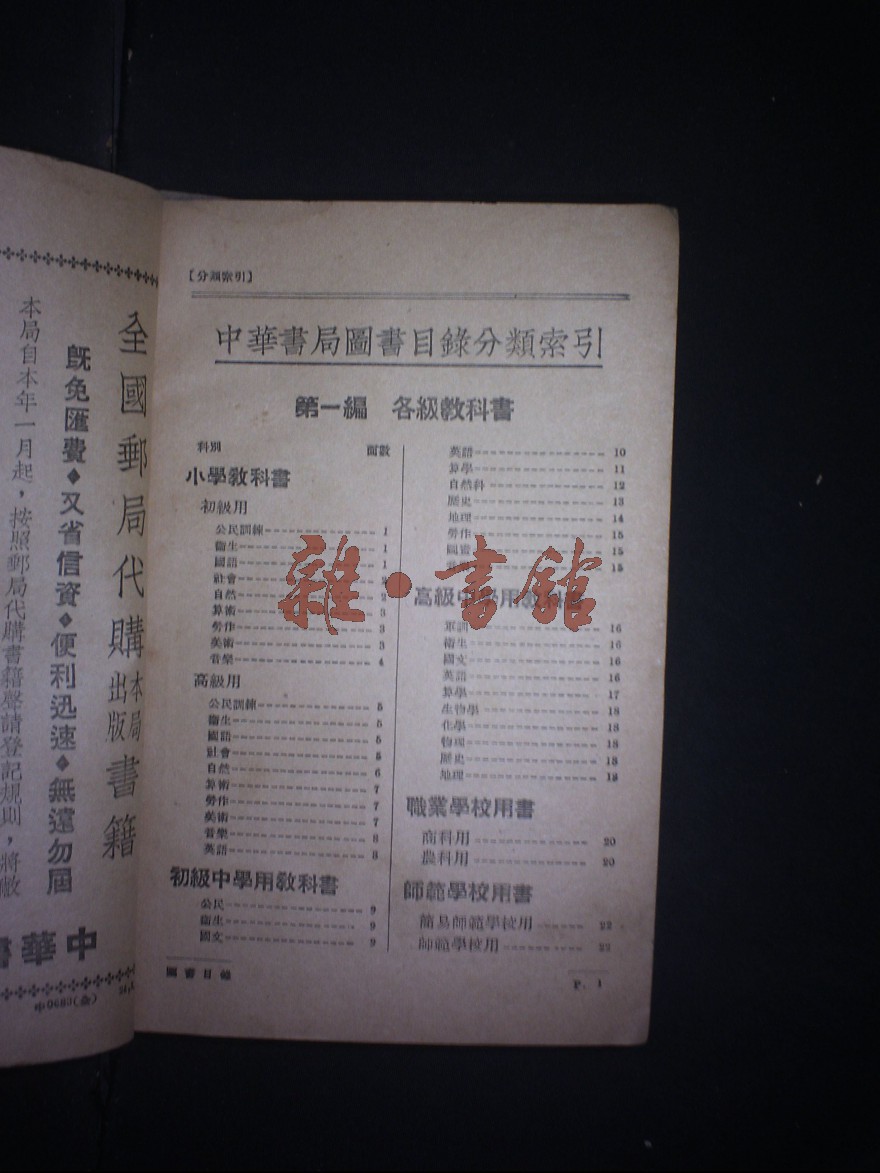 【分類索引】
中華書局圖書目錄分類索引
第一編 各級教科書
科別 面數
小學教科書
初級用
公民訓練 1
衞生 1
國語 1
社會 2
自然 2
算術 3
勞作 3
美術 3
音樂 4
高級用
公民訓練 5
衞生 5
國語 5
社會 5
自然 6
算術 7
勞作 7
美術 7
音樂 8
英語 8
初級中學用教科書
公民 9
衞生 9
國文 9
英語 10
算學 11
自然科 12
歷史 13
地理 14
勞作 15
圖畫 15
15
高級中學用教科書
軍訓 16
衞生 16
國文 16
英語 16
算學 17
生物學 18
化學 18
物理 18
歷史 18
地理 18
職業學校用書
商科用 20
農科用 20
師範學校用書
簡易師範學校用 22
師範學校用 22
圖書目錄
P. 1
雜·書館
全國郵局代購本局出版書籍
既免匯費◆又省信資◆便利迅速◆無遠勿屆
本局自本年一月起，按照郵局代購書籍聲請登記規則，將敝
中華書
中0683(全)